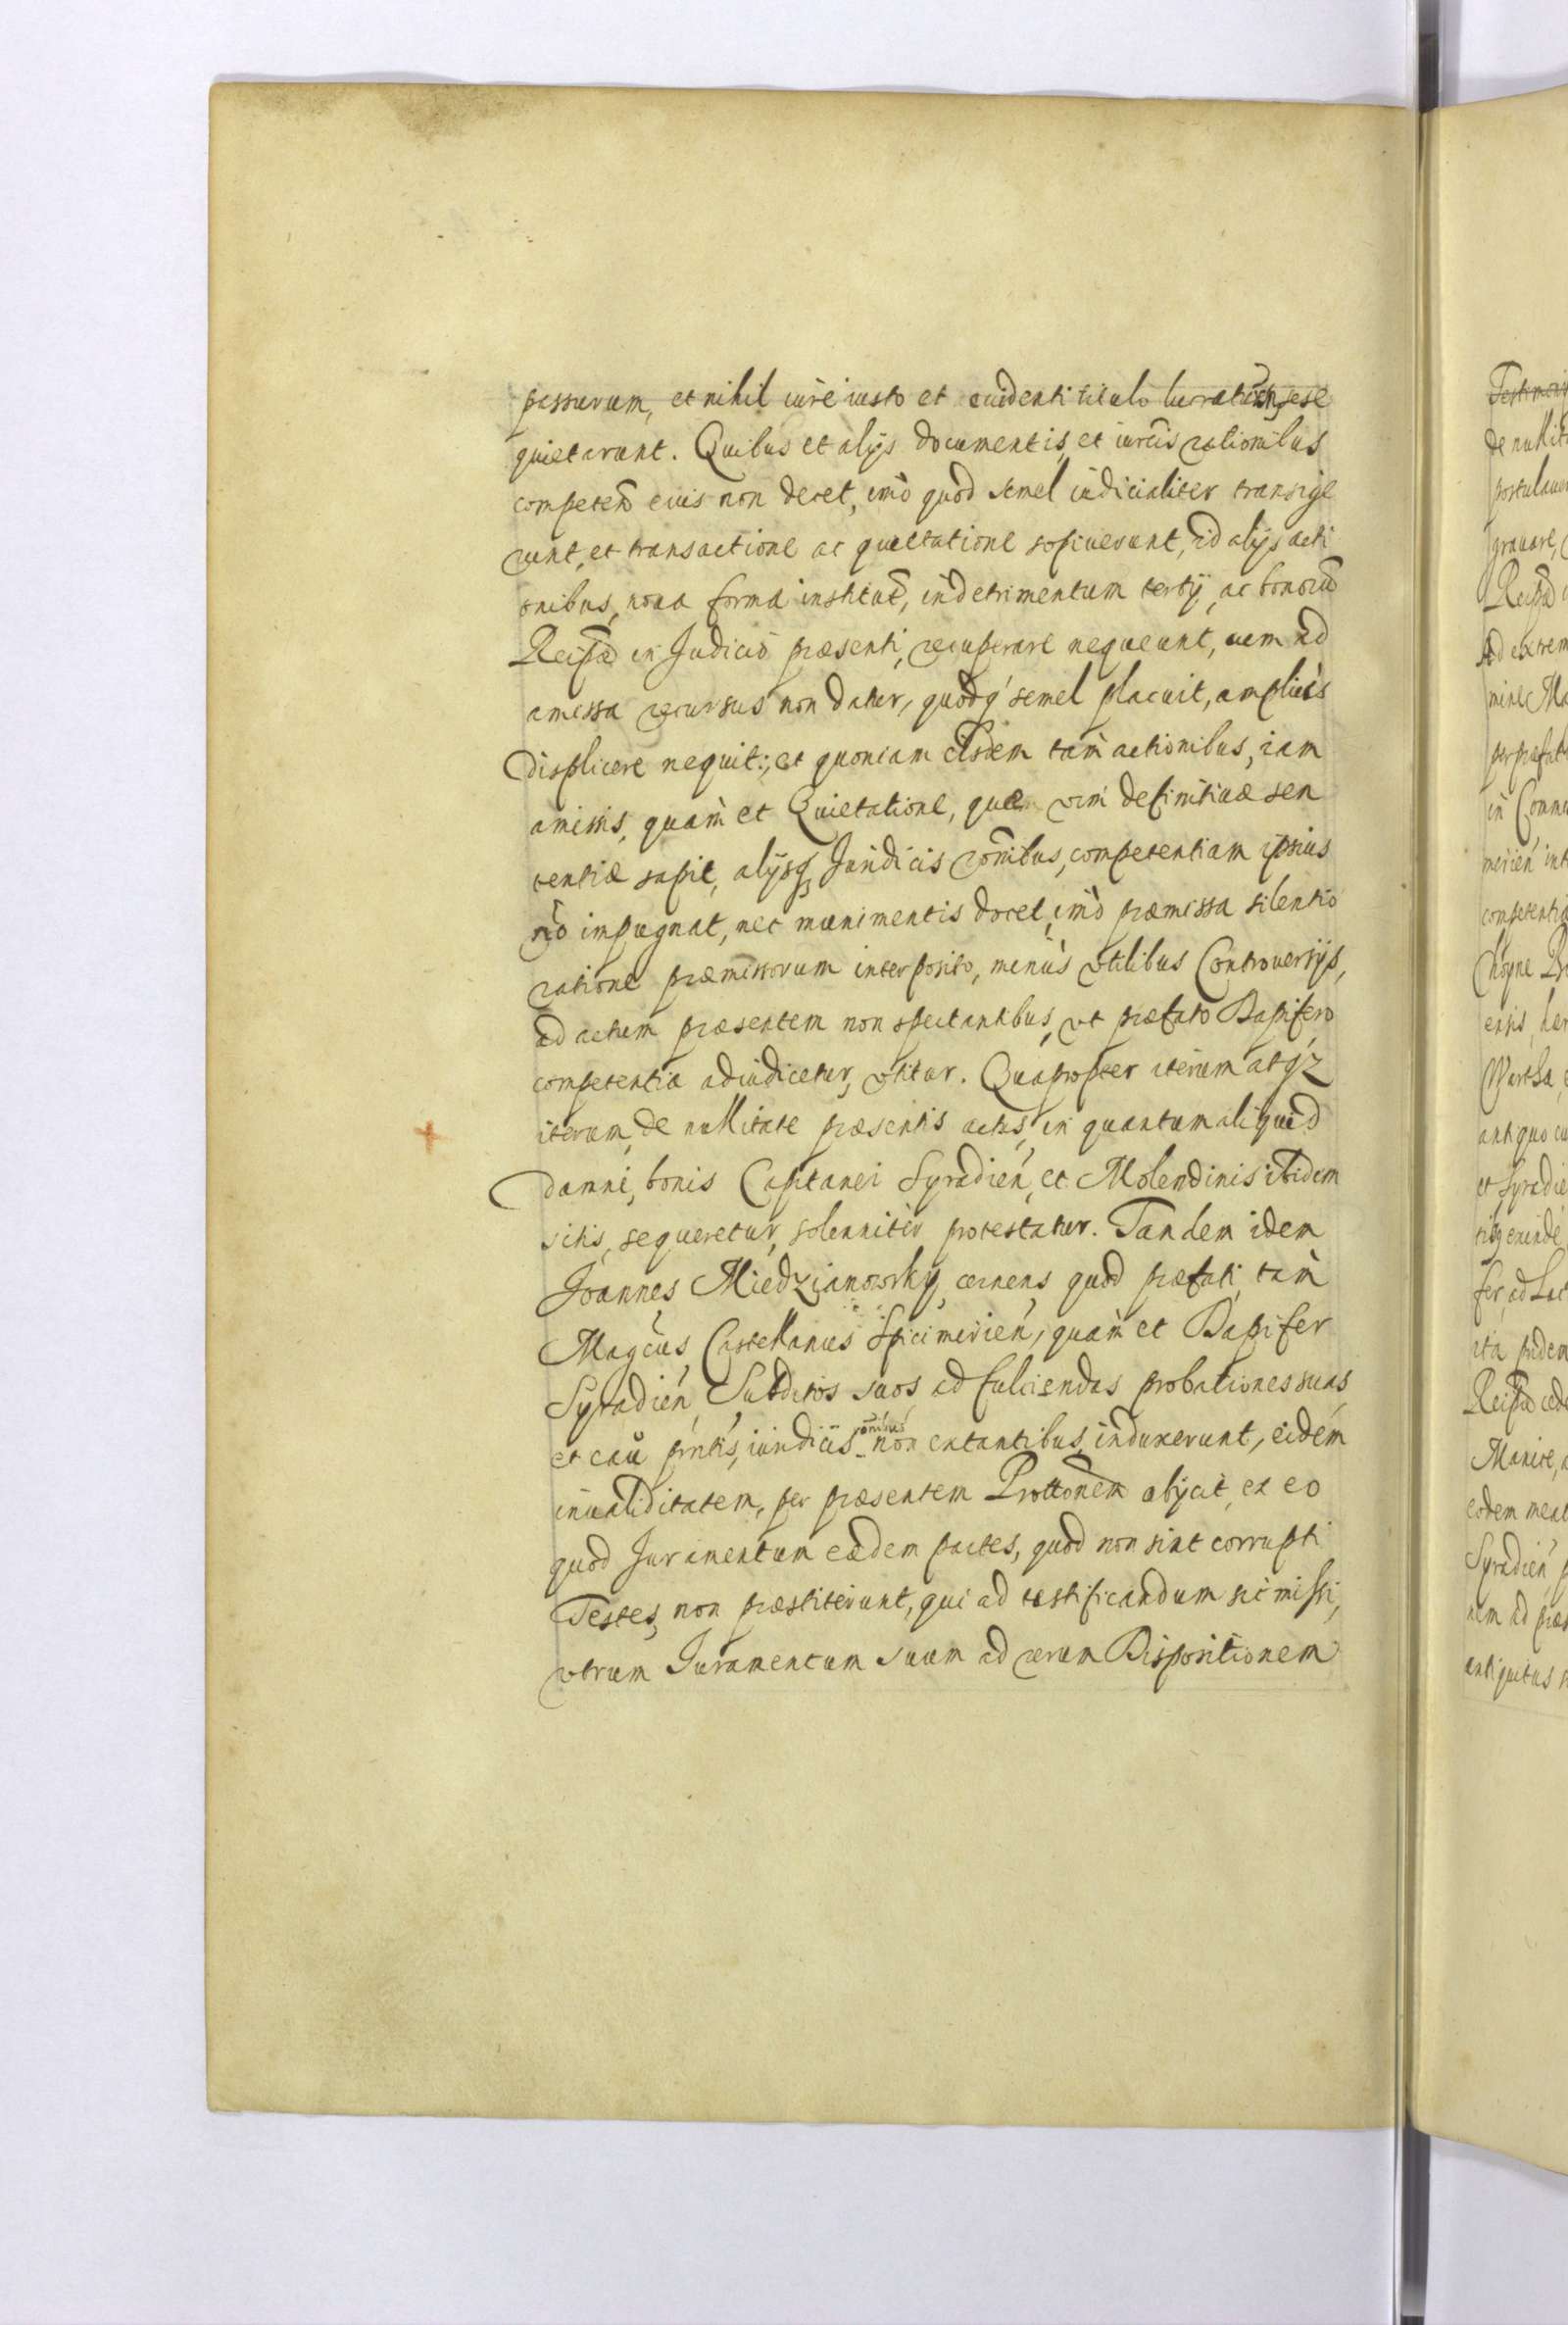 passurum, et nihil iure iusto et euidenti titulo lucratum sese
quietarunt. Quibus et alijs documentis, et iurcis rationibus
competen eius non decet, imo quod semel iudicialiter transige
runt, et transactione ac quietatione sopiuerunt, id alijs acti
onibus, noua forma institut, in detrimentum tertij, ac bonorum
Reipae in Judicio praesenti, recuperare nequeunt, nem ad
amessa recursus non datur, quodq semel placuit, ampliùs
displicere nequit; et quoniam eisdem tam actionibus, iam
amissis, quam et Quietatione, quae vim definitiuae sen
tentiae sapit, alijsq Juridicis romibus, competentiam ipsius
no impugnat, nec munimentis docet, imò praemissa silentio
ratione praemissorum interposito, minùs vtilibus Controuersijs,
ad actum praesentem non spectantibus, vt praefato Dapifero
competentia adiudicetur, vtitur. Quapropter iterum atqz
iterum, de nullitate praesentis actus, in quantum aliquid
damni, bonis Capitanei Syradien, et Molendinis ibidem
sitis, sequeretur, solenniter protestatur. Tandem idem
Joannes Miedzianowsky, cernens quod praefati, tam
Magcus, Castellanus Spicimirien, quam et Dapifer
Syradien, Subditos suos, ad fulciendas probationes suas,
et cau pntis, iuridicis romibus non extantibus, induxerunt, eidem
inualiditatem, per praesentem Prottonem obijcit, ex eo
quod Juramentum eaedem partes, quod non sint corrupti
Testes, non praestiterunt, qui ad testificandum sic missi,
vtrum Juramentum suum ad rerum Dispositionem
de nullit
grauare,
Reipae
ad extrem
mine Ma
in Commi
merien, int
competentia
ensis, her
Wartha,
antiquo
et Syradie
fer, ad Lac
ita pridem
Reipae cede
eodem meat
Syradien,
nem ad praes
antiquitus